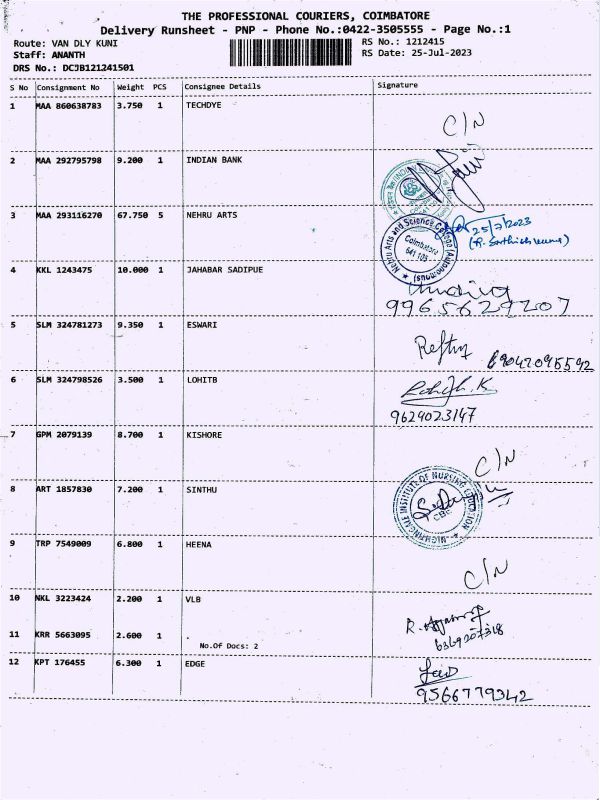 THE PROFESSIONAL COURIERS, COIMBATORE
Delivery Runsheet - PNP - Phone No.:0422-3505555 - Page No.:1
Route: VAN DLY KUNI RS No.: 1212415
Staff: ANANTH RS Date: 25-Jul-2023
DRS No.: DCJB121241501
S No Consignment No Weight PCS Consignee Details Signature
1 MAA 860638783 3.750 1 TECHDYE
C/N
2 MAA 292795798 9.200 1 INDIAN BANK
3 MAA 293116270 67.750 5 NEHRU ARTS
25/7/2023
Nehru Arts and Science College (Autonomous)
Coimbatore
641 105
4 KKL 1243475 10.000 1 JAHABAR SADIPUE
9965629207
5 SLM 324781273 9.350 1 ESWARI
6 SLM 324798526 3.500 1 LOHITB
9629023147
7 GPM 2079139 8.700 1 KISHORE
C/N
8 ART 1857830 7.200 1 SINTHU
NIGHTINGALE INSTITUTE OF NURSING EDUCATION
CBE
9 TRP 7549009 6.800 1 HEENA
C/N
10 NKL 3223424 2.200 1 VLB
6369207318
11 KRR 5663095 2.600 1 .
No.Of Docs: 2
12 KPT 176455 6.300 1 EDGE
9566779342